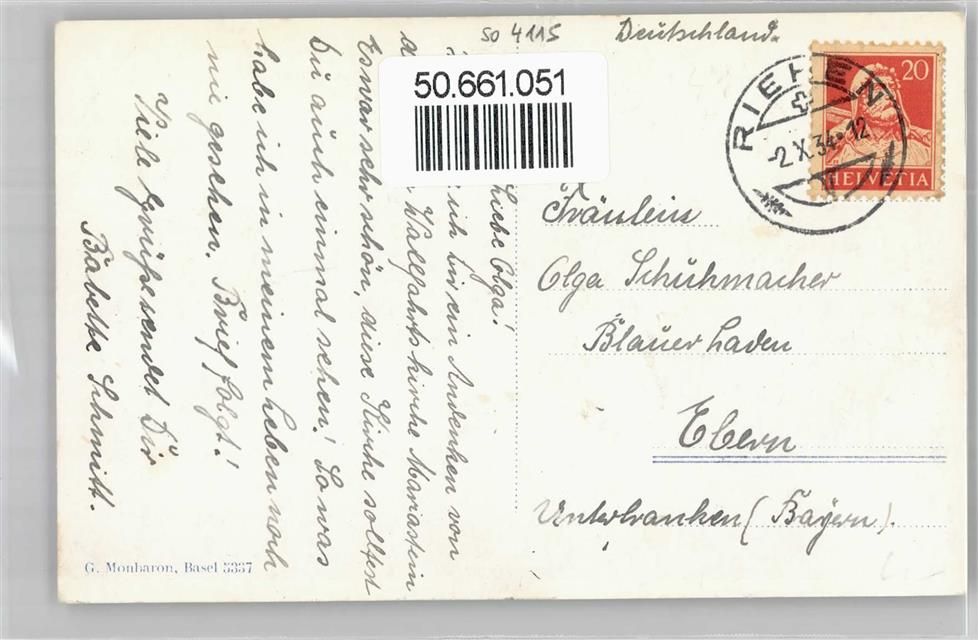 so 4115
Deutschland.
50.661.051
RIEHEN
-2.X.34-12
20
HELVETIA
Liebe Olga!
ich dir ein Andenken von
Wallfahrtskirche Mariastein
Es war sehr schön, diese Kirche solltest
Du auch einmal sehen! So was
habe ich in meinem Leben noch
nie gesehen. Brief folgt!
Viele Grüße sendet Dir
Babette Schmitt.
Fräulein
Olga Schuhmacher
Blauer Laden
Ebern
Unterfranken (Bayern).
G. Monbaron, Basel 3337